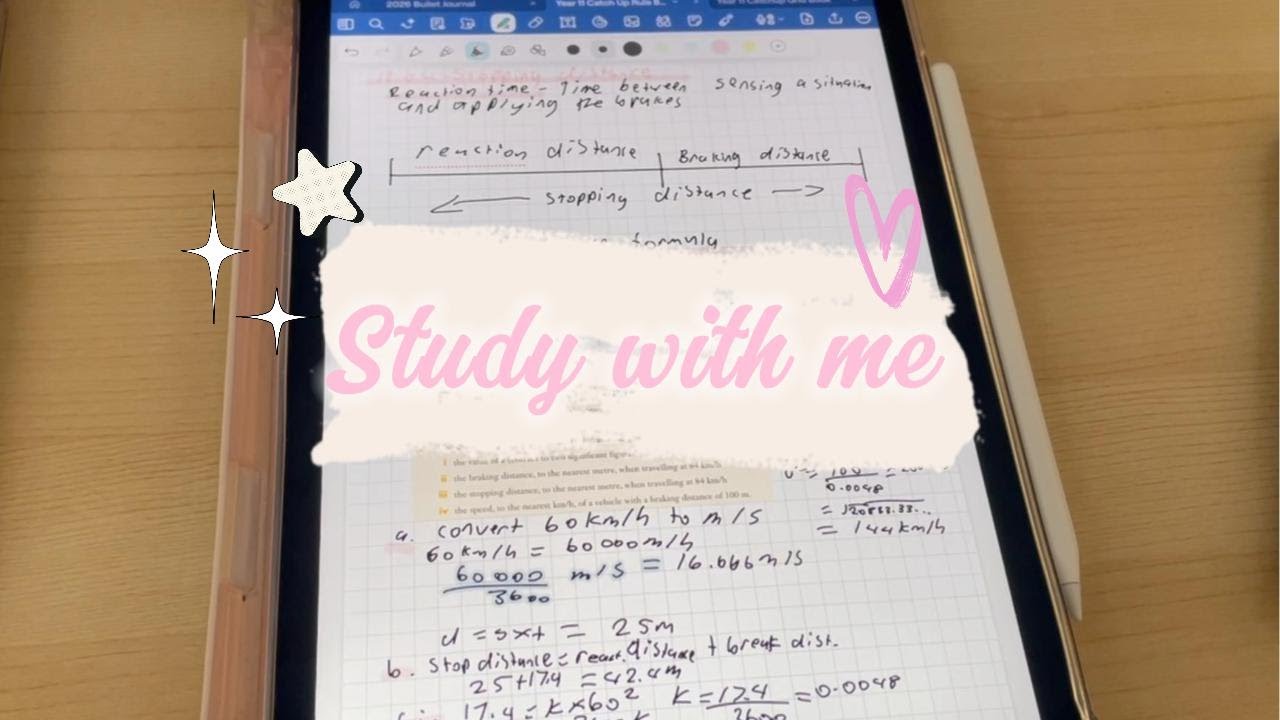 2026 Bullet Journal
Year 11 Catch Up Rule B...
Reaction time - Time between sensing a situation
and applying the brakes
reaction distance Braking distance
Stopping distance
formula
Study with me
the braking distance, to the nearest metre, when travelling at 84 km/h
the stopping distance, to the nearest metre, when travelling at 84 km/h
iv the speed, to the nearest km/h, of a vehicle with a braking distance of 100 m.
0.0048
= 144km/h
a. convert 60km/h to m/s
60km/h = 60000m/h
60 000
3600
m/s = 16.666m/s
d = sxt = 25m
b. Stop distance = react. distance + break dist.
25+17.4 = 42.4m
17.4 = K×60² K = 17.4
3600
= 0.0048